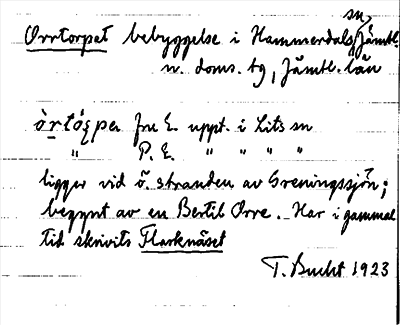 Orrtorpet bebyggelse i Hammerdals sn, Jämtl.
n. doms. tg, Jämtl. län
fru E. uppt. i Lits sn
" P. E. " " " "
ligger vid ö. stranden av Greningssjön;
byggnt av en Bertil Orre. Har i gammal
tid skrivits Flarknäset
T. Bucht 1923